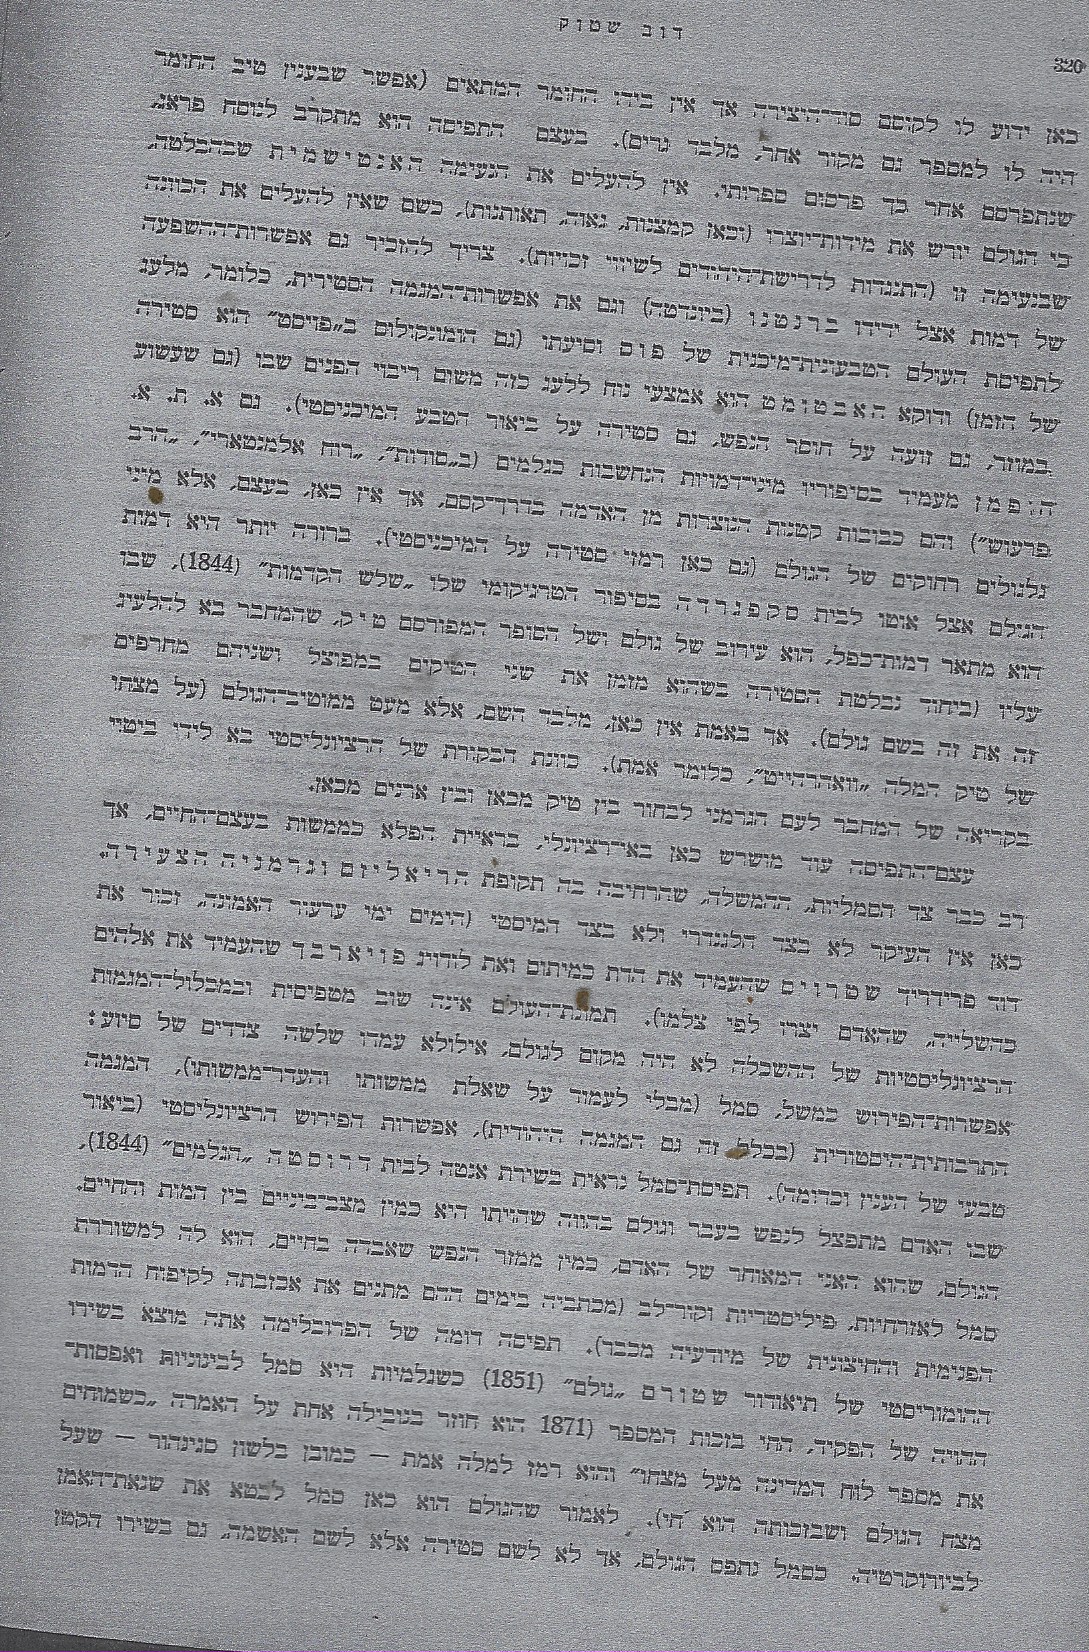 דוב שטוק
320
כאן ידוע לו לקוסם סוד־היצירה אך אין בידו החומר המתאים (אפשר שבענין טיב החומר
היה לו למספר גם מקור אחר, מלבד גרים). בעצם התפיסה הוא מתקרב לנוסח פראג,
שנתפרסם אחר כך פרסום ספרותי. אין להעלים את הנעימה האנטישמית שבהבלטה,
כי הגולם יורש את מידות־יוצרו (וכאן קמצנות, גאוה, תאותנות), כשם שאין להעלים את הכוונה
שבנעימה זו (התנגדות לדרישת־היהודים לשיווי זכויות). צריך להזכיר גם אפשרות־ההשפעה
של דמות אצל ידידו ברנטנו (ביונדטה) וגם את אפשרות־המגמה הסטירית, כלומר, מלעג
לתפיסת העולם הטבעונית־מיכנית של פוס וסיעתו (גם הומונקולוס ב„פויסט” הוא סטירה
של הזמן) ודוקא האבטומט הוא אמצעי נוח ללעג כזה משום ריבוי הפנים שבו (גם שעשוע
במוזר, גם זועה על חוסר הנפש, גם סטירה על ביאור הטבע המיכניסטי). גם א. ת. א.
הופמן מעמיד בסיפוריו מיני־דמויות הנחשבות כגלמים (ב„סודות”, „רוח אלמנטארי”, „הרב
פרעוש”) והם כבובות קטנות הנוצרות מן האדמה בדרך־קסם, אך אין כאן, בעצם, אלא מיני
גלגולים רחוקים של הגולם (גם כאן רמזי סטירה על המיכניסטי). ברורה יותר הוא דמות
הגולם אצל אוטו לבית סקפגרדה בסיפור הטרגיקומי שלו „שלש הקדמות” (1844), שבו
הוא מתאר דמות־כפל, הוא עירוב של גולם ושל הסופר המפורסם טיק, שהמחבר בא להלעיג
עליו (ביחוד נבלטת הסטירה בשהוא מזמן את שני הטיקים במפוצל ושניהם מחרפים
זה את זה בשם גולם). אך באמת אין כאן, מלבד השם, אלא מעט ממוטיב־הגולם (על מצחו
של טיק המלה „וואהרהייט”, כלומר אמת). כוונת הבקורת של הרציונליסטי בא לידי ביטוי
בקריאה של המחבר לעם הגרמני לבחור בין טיק מכאן ובין ארנים מכאן.
עצם־התפיסה עוד מושרש כאן באי־רציונלי, בראיית הפלא כממשות בעצם־החיים, אך
רב כבר צד הסמליות, ההמשלה, שהרחיבה בה תקופת הריאליזם וגרמניה הצעירה.
כאן אין העיקר לא בצד הלגנדרי ולא בצד המיסטי (הימים ימי ערעור האמונה, זכור את
דוד פרידריך שטרויס שהעמיד את הדת כמיתוס ואת לודויג פויארבך שהעמיד את אלהים
כהשלייה, שהאדם יצרו לפי צלמו). תמונת־העולם אינה שוב מטפיסית ובמכלול־המגמות
הרציונליסטיות של ההשכלה לא היה מקום לגולם, אילולא עמדו שלשה צדדים של סיוע:
אפשרות־הפירוש כמשל, סמל (מבלי לעמוד על שאלת ממשותו והעדר־ממשותו), המגמה
התרבותית־היסטורית (בכלל זה גם המגמה היהודית), אפשרות הפירוש הרציונליסטי (ביאור
טבעי של הענין וכדומה). תפיסת־סמל נראית בשירת אנטה לבית דרוסטה „הגלמים” (1844),
שבו האדם מתפצל לנפש בעבר וגולם בהווה שהויתו היא כמין מצב־בינײם בין המות והחיים.
הגולם, שהוא האני המאוחר של האדם, כמין ממזר הנפש שאבדה בחיים, הוא לה למשוררת
סמל לאזרחיות, פיליסטריות וקור־לב (מכתביה בימים ההם מתנים את אכזבתה לקיפוח הדמות
הפנימית והחיצונית של מיודעיה מכבר). תפיסה דומה של הפרובלימה אתה מוצא בשירו
ההומוריסטי של תיאודור שטורם „גולם” (1851) כשגלמיות היא סמל לבינוניות ואפסות־
ההויה של הפקיד, החי בזכות המספר (1871 הוא חוזר בנובילה אחת על האמרה „כשמוחים
את מספר לוח המדינה מעל מצחו” והוא רמז למלה אמת — כמובן בלשון סגינהור — שעל
מצח הגולם ושבזכותה הוא חי). לאמור שהגולם הוא כאן סמל לבטא את שנאת־האמן
לביורוקרטיה. כסמל נתפס הגולם, אך לא לשם סטירה אלא לשם האשמה, גם בשירו הקטן